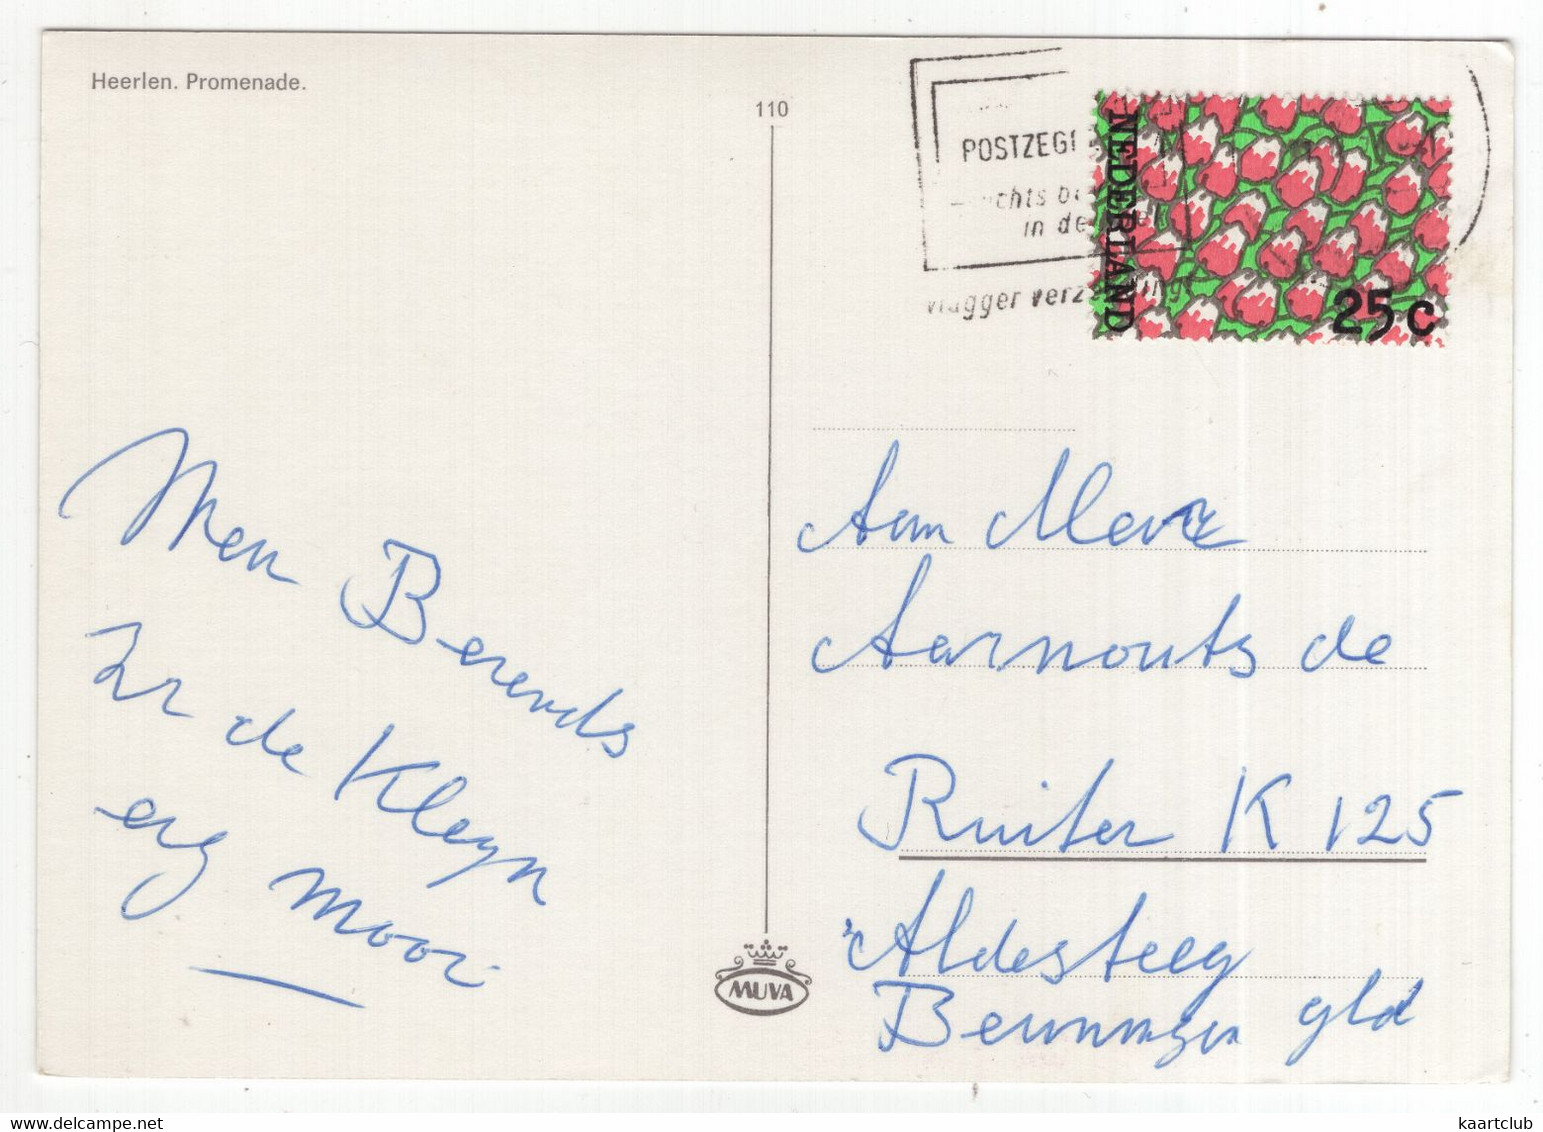 Heerlen. Promenade.
110
POSTZEGE
rechts bo
in de
vlugger verzending
NEDERLAND
25c
Men Berends
Zr de Kleyn
erg mooi
Aan Mevr
Aarnouts de
Ruiter K 125
Aldesteeg
Beuningen gld
MUVA
www.delcampe.net
kaartclub